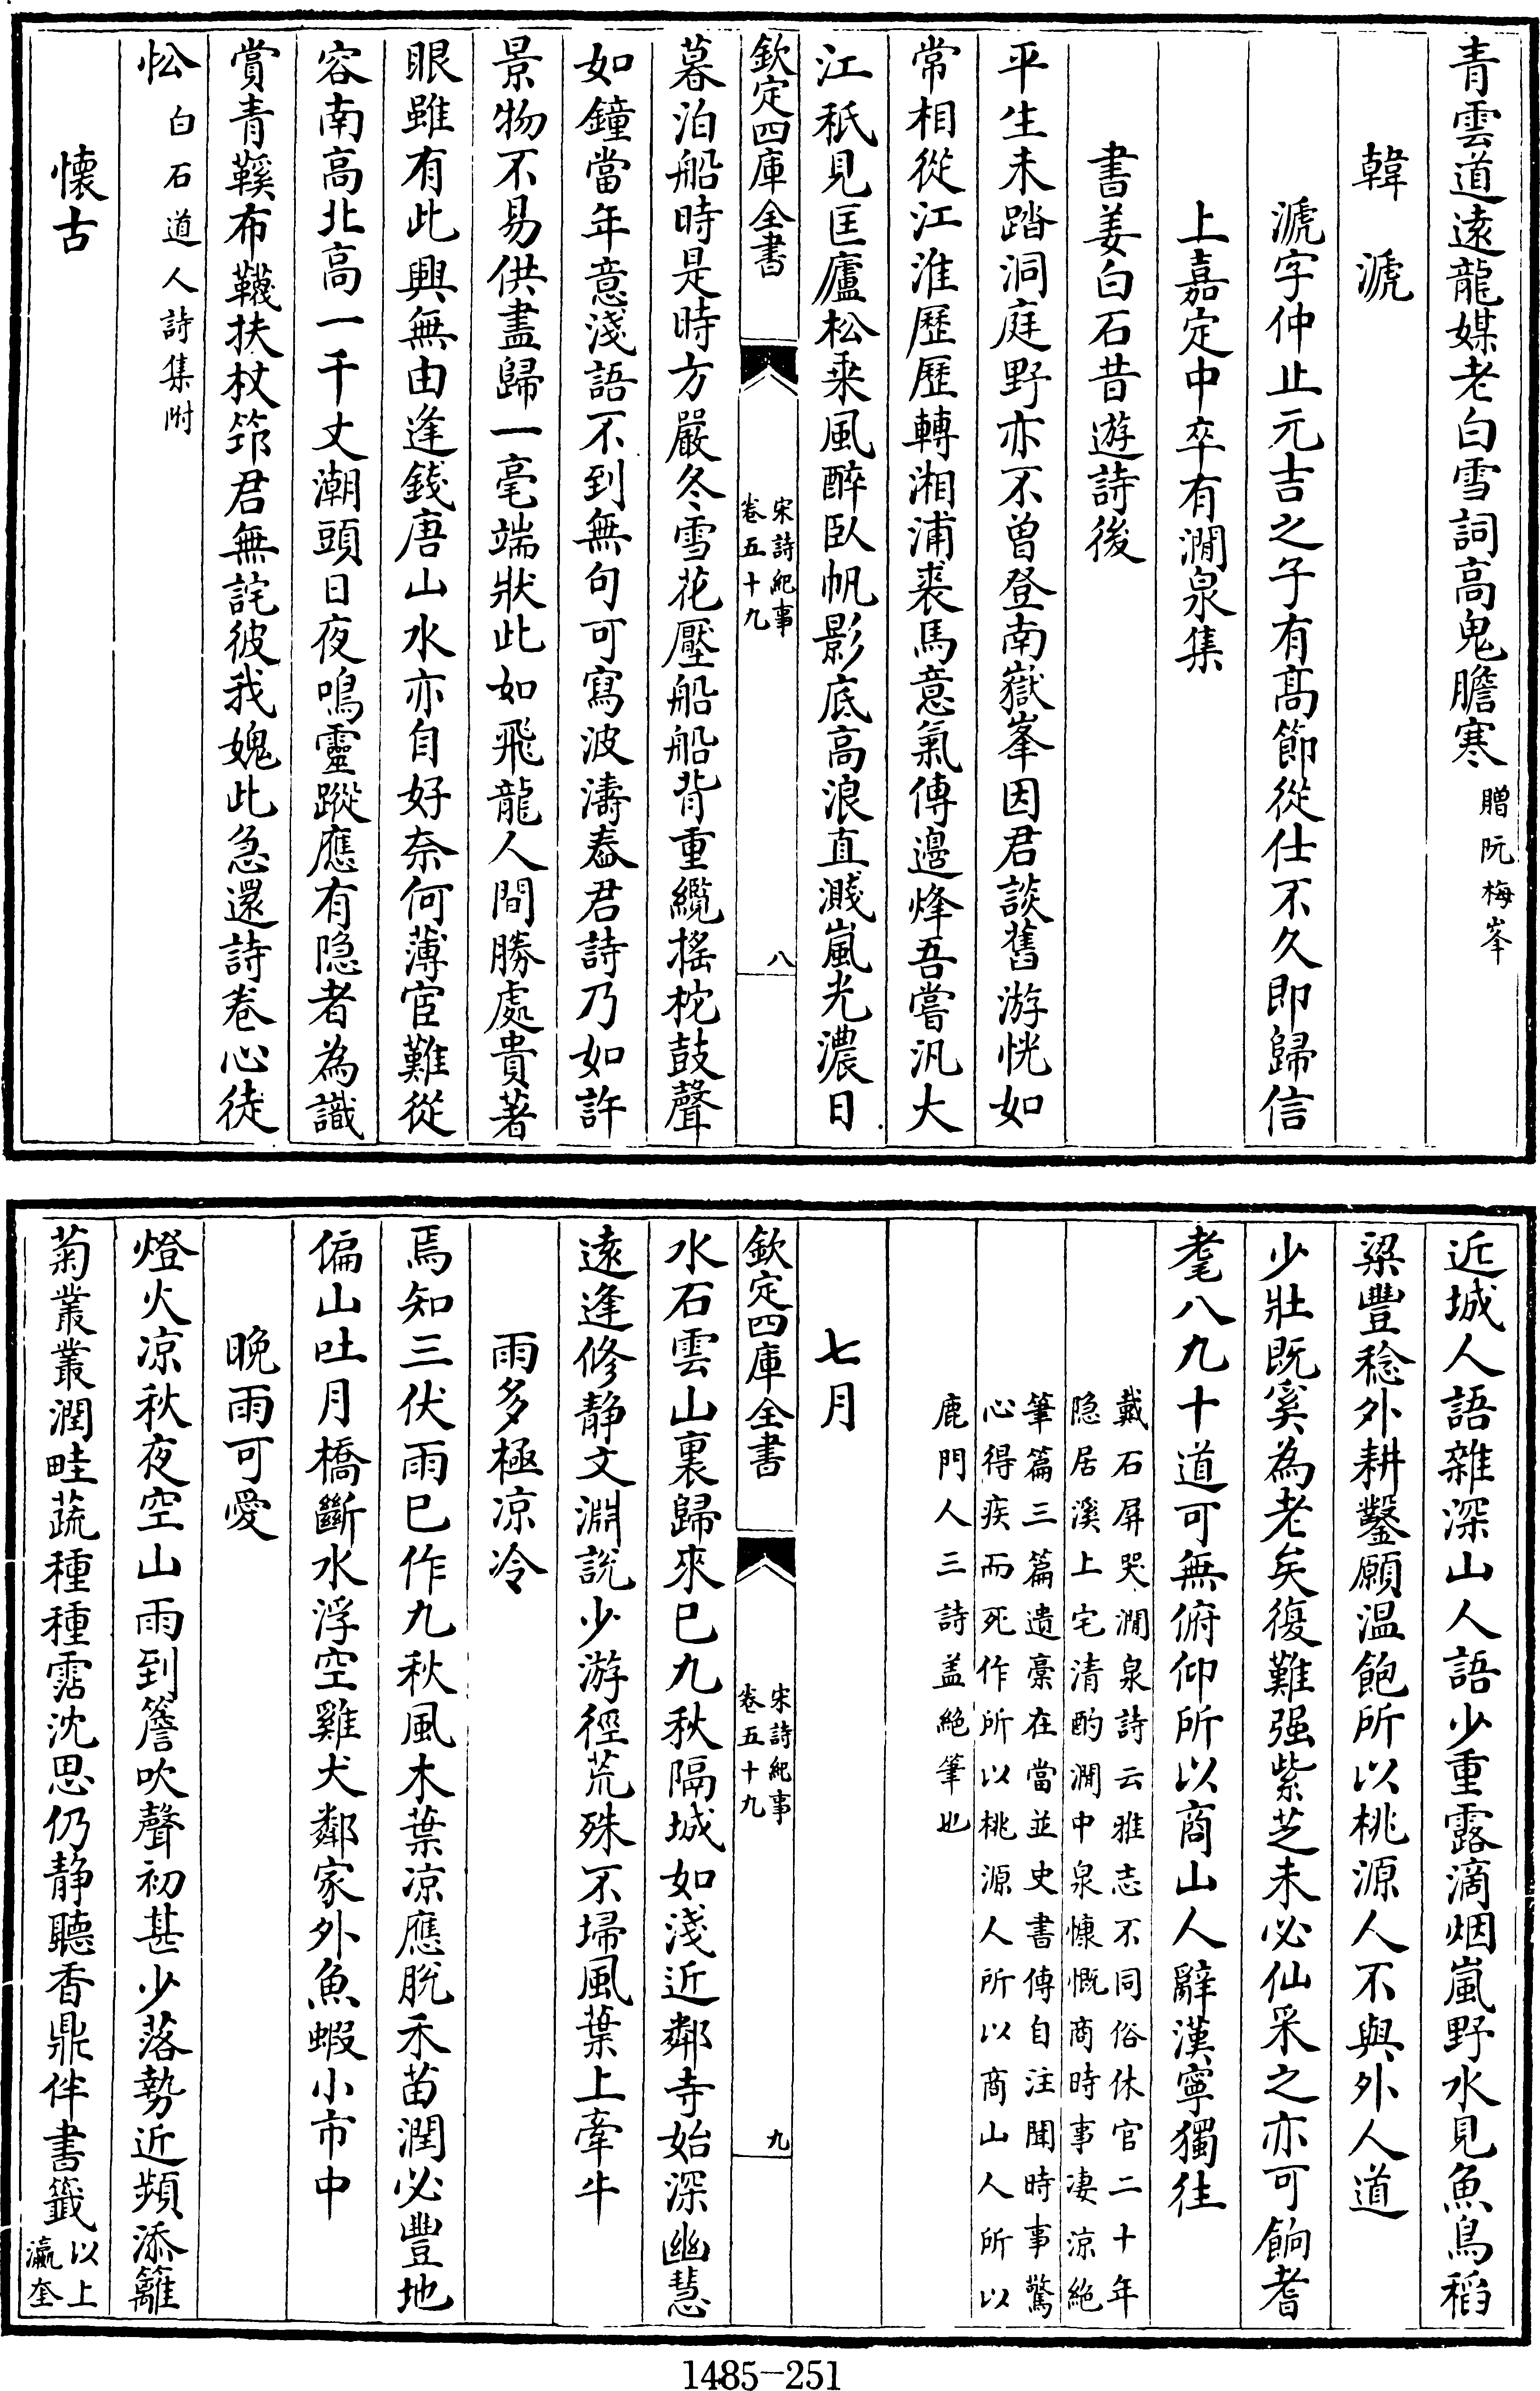 青雲道遠龍媒老白雪詞高鬼膽寒贈阮梅峯
韓淲
淲字仲止元吉之子有高節從仕不久即歸信
上嘉定中卒有澗泉集
書姜白石昔遊詩後
平生未踏洞庭野亦不曾登南嶽峯因君談舊游恍如
常相從江淮歷歷轉湘浦裘馬意氣傳邊烽吾嘗汎大
江秖見匡廬松乗風醉臥帆影底高浪直濺嵐光濃日
欽定四庫全書
宋詩紀事
卷五十九
八
暮泊船時是時方嚴冬雪花壓船船背重纜搖枕鼓聲
如鐘當年意淺語不到無句可寫波濤舂君詩乃如許
景物不易供盡歸一毫端狀此如飛龍人間勝處貴著
眼雖有此興無由逢錢唐山水亦自好奈何薄宦難從
容南高北高一千丈潮頭日夜鳴靈蹤應有隐者為識
賞青鞵布韈扶杖筇君無詫彼我媿此急還詩卷心徒
忪白石道人詩集附
懷古
近城人語雜深山人語少重露滴烟嵐野水見魚鳥稻
粱豐稔外耕鑿願温飽所以桃源人不與外人道
少壯既奚為老矣復難强紫芝未必仙采之亦可餉耆
耄八九十道可無俯仰所以商山人辭漢寧獨往
戴石屏哭澗泉詩云雅志不同俗休官二十年
隐居溪上宅清酌澗中泉慷慨商時事凄凉絶
筆篇三篇遺稾在當並史書傳自注聞時事驚
心得疾而死作所以桃源人所以商山人所以
鹿門人三詩盖絶筆也
七月
欽定四庫全書
宋詩紀事
卷五十九
九
水石雲山裏歸來已九秋隔城如淺近鄰寺始深幽慧
遠逢修静文淵説少游徑荒殊不埽風葉上牽牛
雨多極凉冷
焉知三伏雨已作九秋風木葉凉應脫禾苗潤必豐地
偏山吐月橋斷水浮空雞犬鄰家外魚蝦小市中
晩雨可愛
燈火凉秋夜空山雨到簷吹聲初甚少落勢近頻添籬
菊叢叢潤畦蔬種種霑沈思仍静聽香鼎伴書籤以上
瀛奎
1485-251